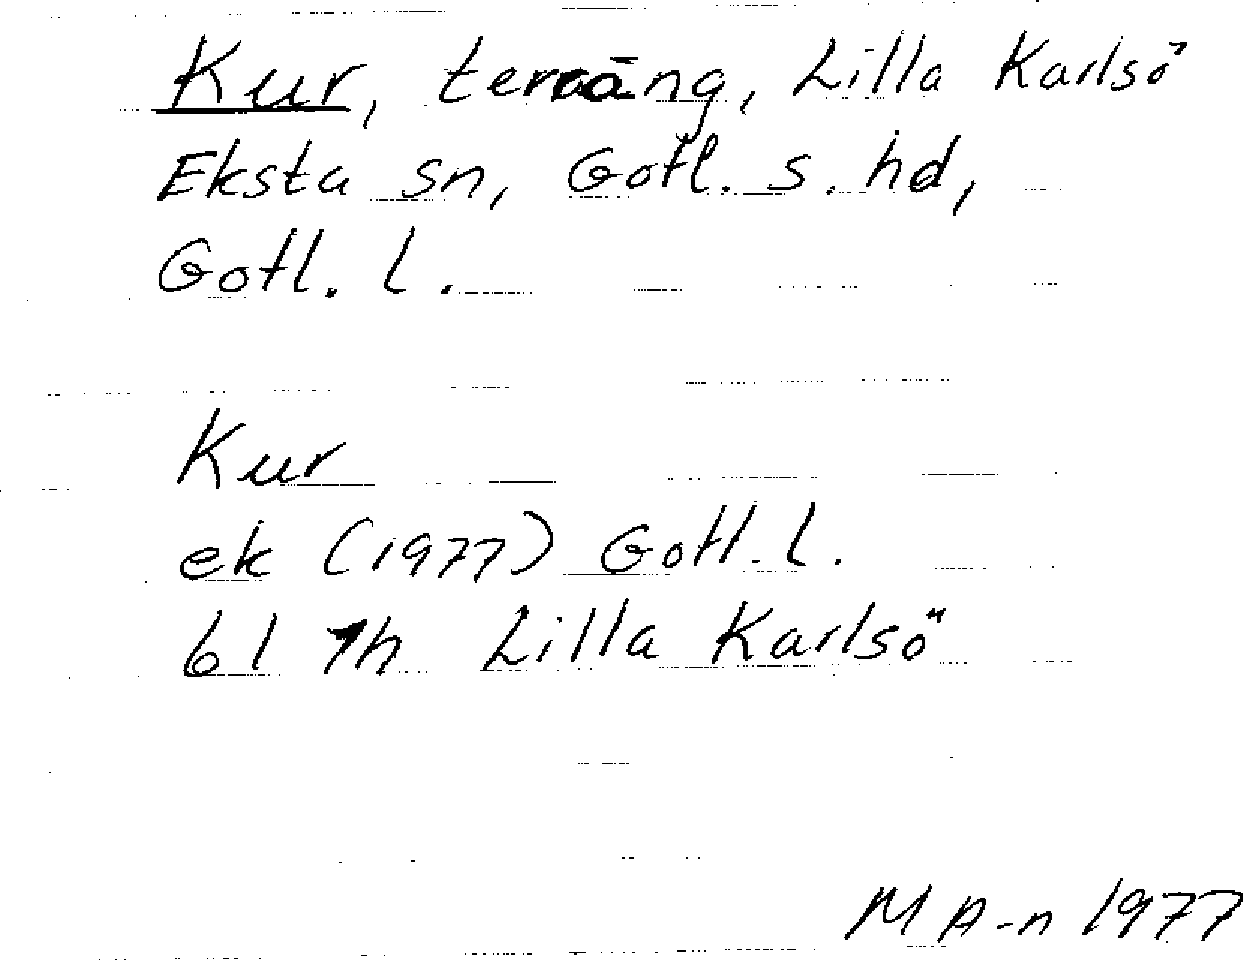 Kur, teraäng, Lilla Karlsö
Eksta sn, Gotl. s. hd,
Gotl. l.
Kur
ek (1977) Gotl. l.
6 l 7h Lilla Karlsö
M A-n 1977